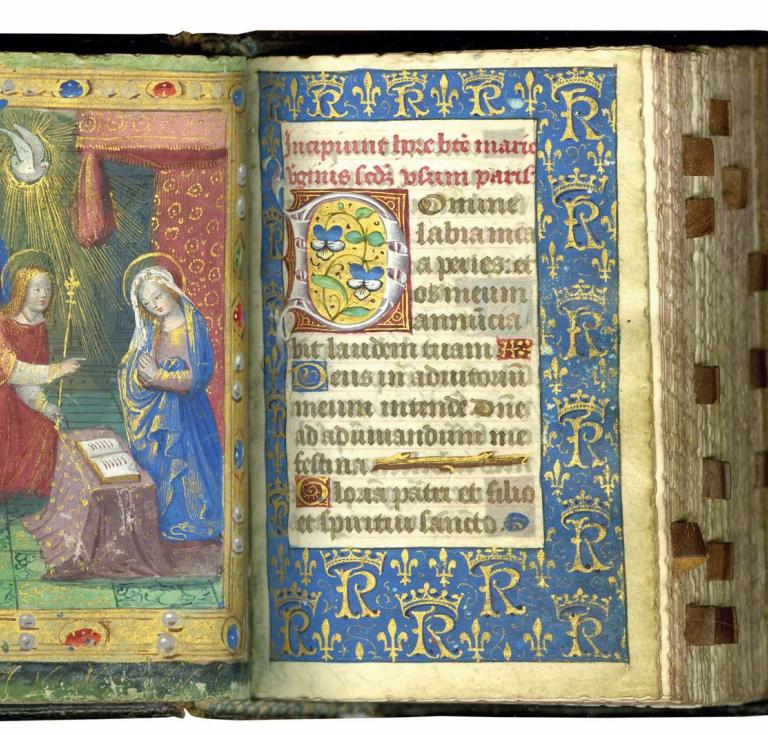 Incipiunt hore bte marie
vginis scdz vsum paris
Domine
labia mea
a peries: et
os meum
annūcia
bit laudem tuam
Deus in adiutoriū
meum intende Dne
ad adiuuandum me
festina
Gloria patri et filio
et spiritui sancto.